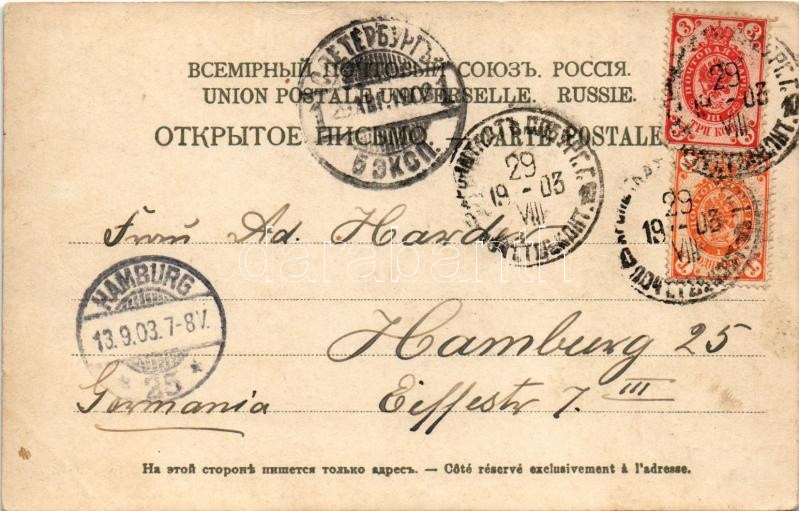 ВСЕМІРНЫЙ ПОЧТОВЫЙ СОЮЗЪ. РОССІЯ.
UNION POSTALE UNIVERSELLE. RUSSIE.
ОТКРЫТОЕ ПИСЬМО — CARTE POSTALE
С.ПЕТЕРБУРГЪ
1 1
5 ЭКСП.
29
19 - 03
VIII
29
19 - 03
VIII
29
19 - 03
VIII
3 3
ПОЧТОВАЯ
ТРИ КОП.
1
Frau Ad. Harder
HAMBURG
13.9.03.7-8V.
* 25 *
Hamburg 25
Germania
Eiffestr 7. III
darabanth
На этой сторонѣ пишется только адресъ. — Côté réservé exclusivement à l'adresse.